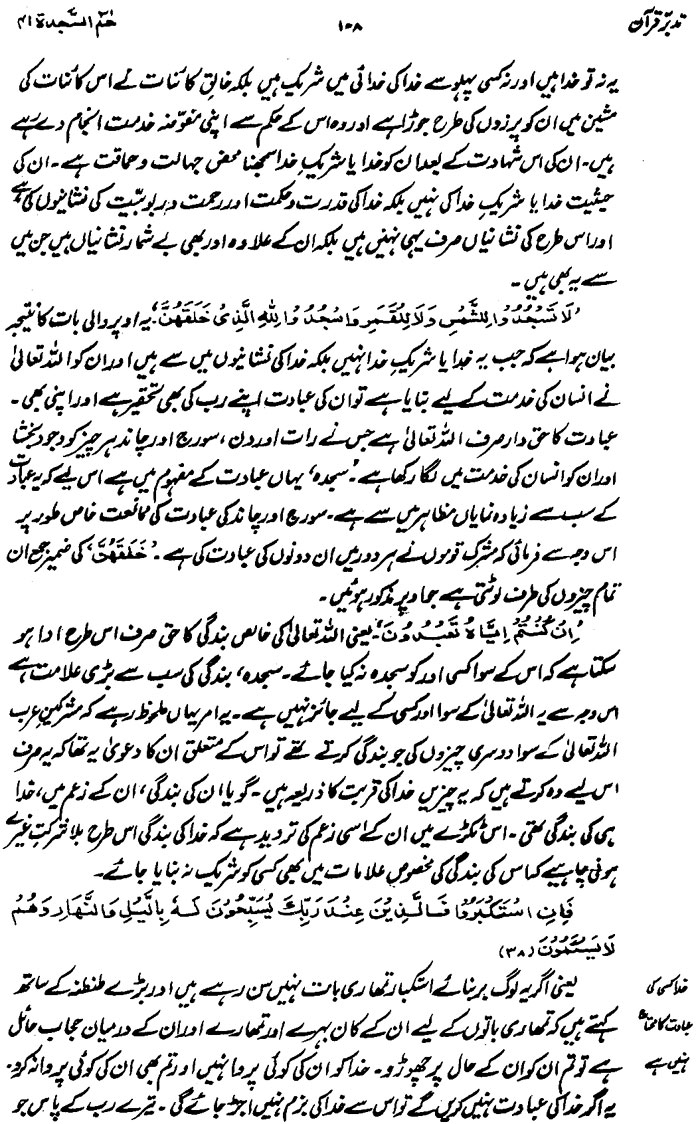 تدبرِ قرآن ۱۰۸ حٰمٓ السجدۃ ۴۱
یہ نہ تو خدا ہیں اور نہ کسی پہلو سے خدا کی خدائی میں شریک ہیں بلکہ خالقِ کائنات نے اس کائنات کی
مشین میں ان کو پرزوں کی طرح جوڑا ہے اور وہ اس کے حکم سے اپنی مفوّضہ خدمت انجام دے رہے
ہیں۔ ان کی اس شہادت کے بعد ان کو خدا یا شریکِ خدا سمجھنا محض جہالت و حماقت ہے۔ ان کی
حیثیت خدا یا شریکِ خدا کی نہیں بلکہ خدا کی قدرت و حکمت اور رحمت و ربوبیّت کی نشانیوں کی ہے
اور اس طرح کی نشانیاں صرف یہی نہیں ہیں بلکہ ان کے علاوہ اور بھی بے شمار نشانیاں ہیں جن میں
سے یہ بھی ہیں۔
’لَا تَسْجُدُوْا لِلشَّمْسِ وَلَا لِلْقَمَرِ وَاسْجُدُوْا لِلّٰهِ الَّذِیْ خَلَقَهُنَّ‘ یہ اوپر والی بات کا نتیجہ
بیان ہوا ہے کہ جب یہ خدا یا شریکِ خدا نہیں بلکہ خدا کی نشانیوں میں سے ہیں اور ان کو اللہ تعالیٰ
نے انسان کی خدمت کے لیے بنایا ہے تو ان کی عبادت اپنے رب کی بھی تحقیر ہے اور اپنی بھی۔
عبادت کا حق دار صرف اللہ تعالیٰ ہے جس نے رات اور دن، سورج اور چاند ہر چیز کو وجود بخشا
اور ان کو انسان کی خدمت میں لگا رکھا ہے۔ ’سجدہ‘ یہاں عبادت کے مفہوم میں ہے اس لیے کہ یہ عبادت
کے سب سے زیادہ نمایاں مظاہر میں سے ہے۔ سورج اور چاند کی عبادت کی ممانعت خاص طور پر
اس وجہ سے فرمائی کہ مشرک قوموں نے ہر دور میں ان دونوں کی عبادت کی ہے۔ ’خَلَقَهُنَّ‘ کی ضمیر جمع ان
تمام چیزوں کی طرف لوٹتی ہے جو اوپر مذکور ہوئیں۔
’اِنْ كُنْتُمْ اِیَّاهُ تَعْبُدُوْنَ‘ یعنی اللہ تعالیٰ کی خالص بندگی کا حق صرف اس طرح ادا ہو
سکتا ہے کہ اس کے سوا کسی اور کو سجدہ نہ کیا جائے۔ سجدہ، بندگی کی سب سے بڑی علامت ہے
اس وجہ سے یہ اللہ تعالیٰ کے سوا اور کسی کے لیے جائز نہیں ہے۔ یہ امر یہاں ملحوظ رہے کہ مشرکینِ عرب
اللہ تعالیٰ کے سوا دوسری چیزوں کی جو بندگی کرتے تھے تو اس کے متعلق ان کا دعویٰ یہ تھا کہ یہ صرف
اس لیے وہ کرتے ہیں کہ یہ چیزیں خدا کی قربت کا ذریعہ ہیں۔ گویا ان کی بندگی، ان کے زعم میں، خدا
ہی کی بندگی تھی۔ اس ٹکڑے میں ان کے اسی زعم کی تردید ہے کہ خدا کی بندگی اس طرح بلا شرکتِ غیرے
ہونی چاہیے کہ اس کی بندگی کی مخصوص علامات میں بھی کسی کو شریک نہ بنایا جائے۔
فَاِنِ اسْتَكْبَرُوْا فَالَّذِیْنَ عِنْدَ رَبِّكَ یُسَبِّحُوْنَ لَهٗ بِالَّیْلِ وَالنَّهَارِ وَهُمْ
لَا یَسْئَمُوْنَ (۳۸)
خدا کسی کی
عبادت کا محتاج
نہیں ہے
یعنی اگر یہ لوگ بربنائے استکبار تمھاری بات نہیں سن رہے ہیں اور بڑے طنطنہ کے ساتھ
کہتے ہیں کہ تمھاری باتوں کے لیے ان کے کان بہرے اور تمھارے اور ان کے درمیان حجاب حائل
ہے تو تم ان کو ان کے حال پر چھوڑو۔ خدا کو ان کی کوئی پروا نہیں اور تم بھی ان کی کوئی پروا نہ کرو۔
یہ اگر خدا کی عبادت نہیں کریں گے تو اس سے خدا کی بزم نہیں اجڑ جائے گی۔ تیرے رب کے پاس جو